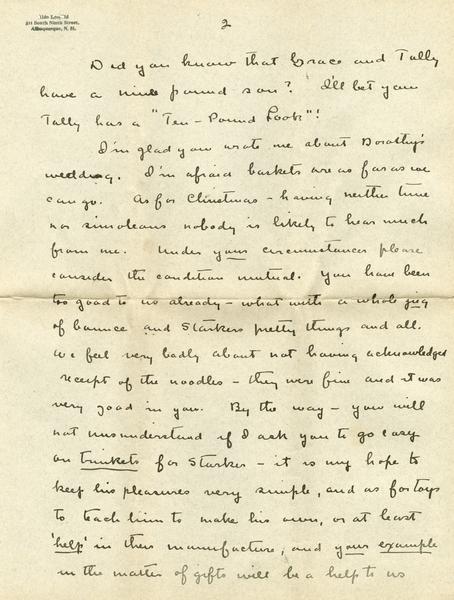 Aldo Leopold
211 South Ninth Street,
Albuquerque, N. M.
2
Did you know that Grace and Tally
have a nine pound son? I'll bet you
Tally has a "Ten-Pound Look"!
I'm glad you wrote me about Dorothy's
wedding. I'm afraid baskets are as far as we
can go. As for Christmas - having neither time
nor simoleans nobody is likely to hear much
from me. Under your circumstances please
consider the condition mutual. You have been
too good to us already - what with a whole jug
of bounce and Starkers pretty things and all.
We feel very badly about not having acknowledged
receipt of the noodles - they were fine and it was
very good in you. By the way - you will
not misunderstand if I ask you to go easy
on trinkets for Starker - it is my hope to
keep his pleasures very simple, and as for toys
to teach him to make his own, or at least
'help' in their manufacture, and your example
in the matter of gifts will be a help to us